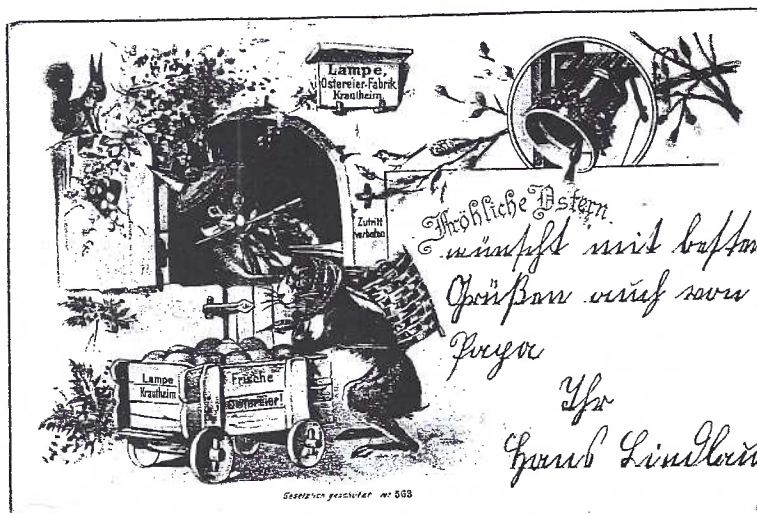 Lampe,
Ostereier-Fabrik
Krautheim
Zutritt
verboten
Fröhliche Ostern
wünscht mit besten
Grüßen auch von
Papa
Ihr
Hans Lindlau
Lampe
Krautheim
Frische
Ostereier!
Gesetzlich geschützt № 563